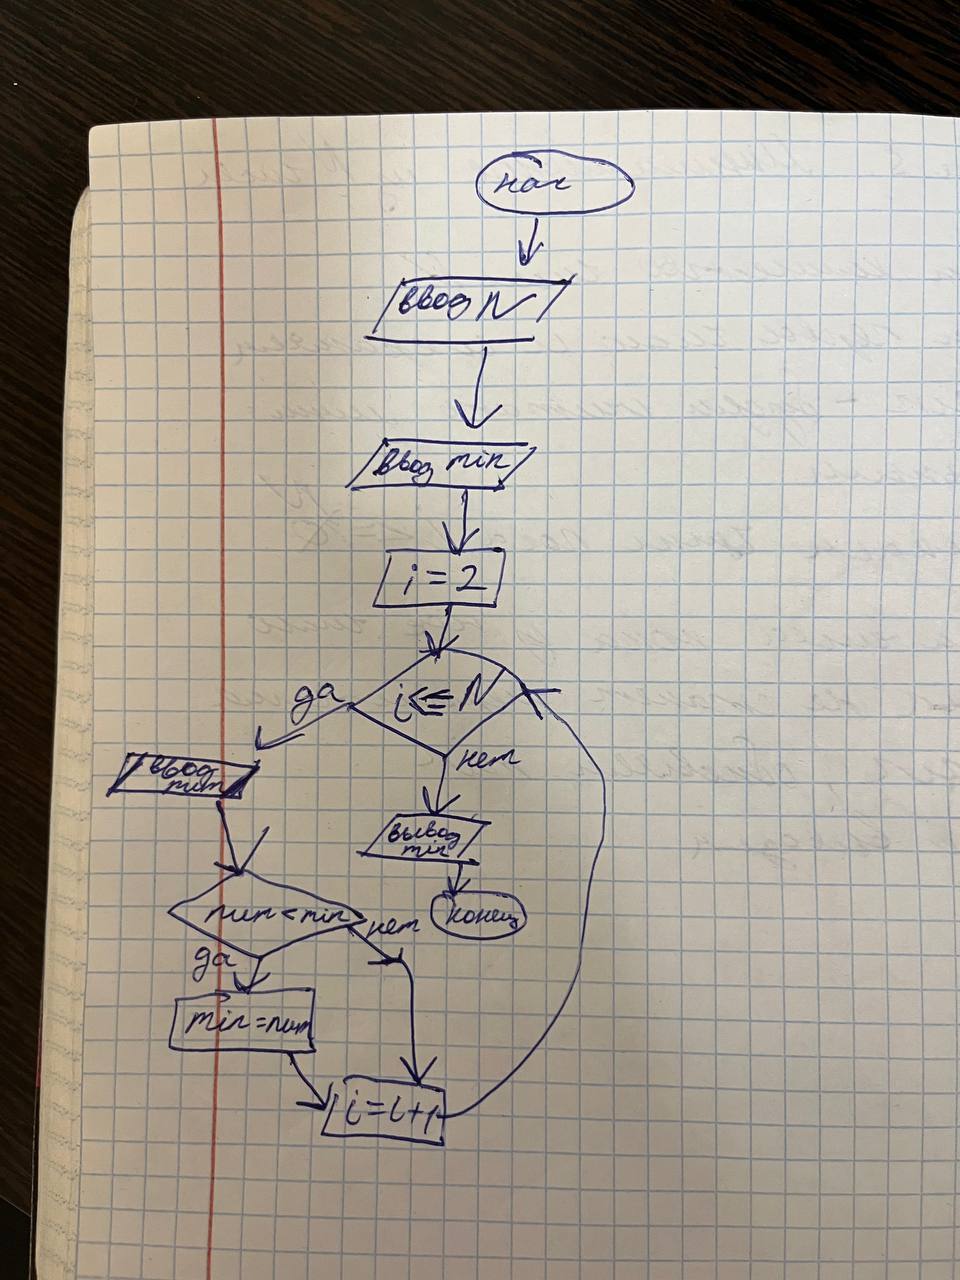 нач
ввод N
ввод min
i = 2
i <= N
да
нет
ввод
num
вывод
min
конец
num < min
нет
да
min = num
i = i + 1